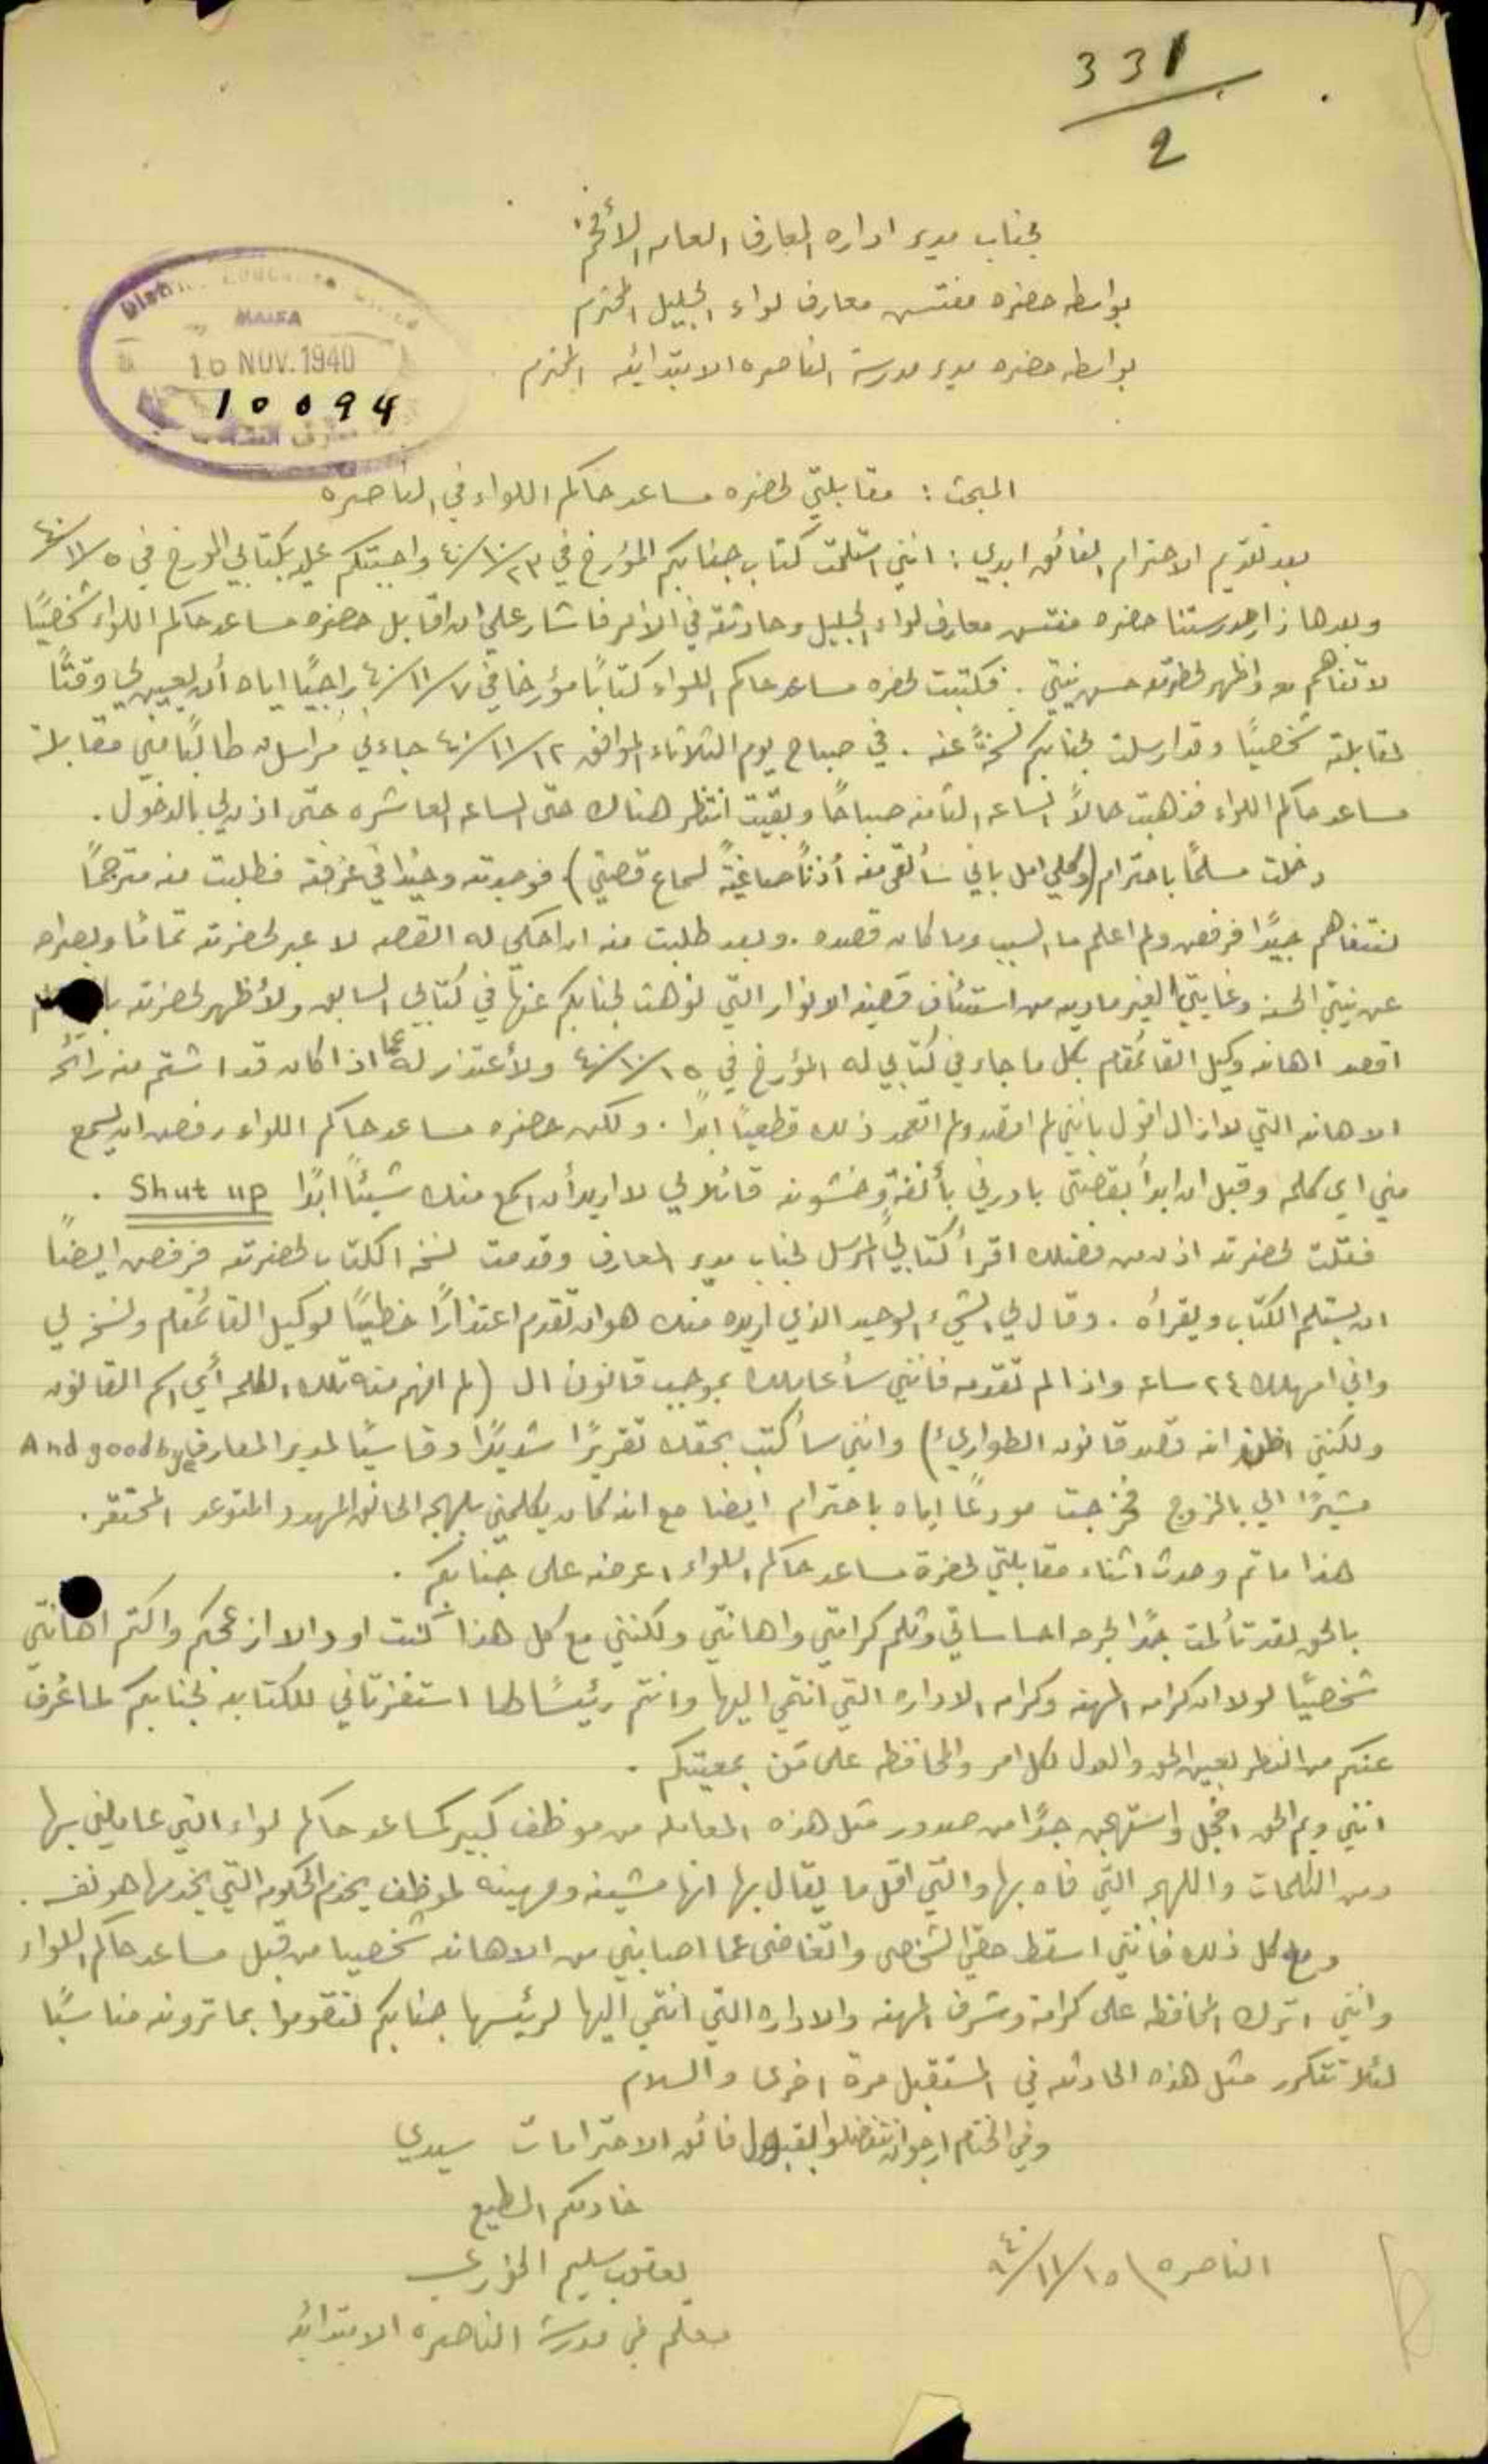 331
2
لجناب مدير ادارة المعارف العامه الأفخم
بواسطة حضرة مفتش معارف لواء الجليل المحترم
بواسطة حضرة مدير مدرسة الناصره الابتدائيه المحترم
HAIFA
16 NOV. 1940
10094
المبحث : مقابلتي لحضرة مساعد حاكم اللواء في الناصره
بعد تقديم الاحترام الفائق ابدي : انني استلمت كتاب جنابكم المؤرخ في ٢٣/١٠/٤٠ واجبتكم عليه بكتابي المؤرخ في ٥/١١/٤٠
وبعدها زار مدرستنا حضرة مفتش معارف لواء الجليل وحادثته في الامر فاشار علي ان اقابل حضرة مساعد حاكم اللواء شخصيًا
لاتفاهم معه واظهر لحضرته حسن نيتي . فكتبت لحضرة مساعد حاكم اللواء كتابًا مؤرخا في ٧/١١/٤٠ راجيًا اياه أن يعين لي وقتًا
لمقابلته شخصيًا وقد ارسلت لجنابكم نسخةً عنه . في صباح يوم الثلاثاء الموافق ١٢/١١/٤٠ جاءني مُراسل طالبًا مني مقابلة
مساعد حاكم اللواء فذهبت حالاً الساعه الثامنه صباحًا وبقيت انتظر هناك حتى الساعه العاشره حتى اذن لي بالدخول .
دخلت مسلمًا باحترام (وكلي امل باني سألقى منه أذنًا صاغيةً لسماع قصتي) فوجدته وحيدًا في غرفته فطلبت منه مترجمًا
لنتفاهم جيدًا فرفض ولم اعلم ما السبب وما كان قصده . وبعد طلبت منه ان احكي له القصه لا عبر لحضرته تمامًا وبصراحه
عن نيتي الحسنه وغايتي الغير ماديه من استئناف قضية الانوار التي نوهت لجنابكم عنها في كتابي السابق ولأظهر لحضرته
اقصد اهانة وكيل القائمقام بكل ما جاء في كتابي له المؤرخ في ١٥/١٠/٤٠ ولأعتذر له عما اذا كان قد اشتم منه رائحة
الاهانه التي لا ازال اقول بانني لم اقصد ولم اتعمد ذلك قطعيًا ابدًا . ولكن حضرة مساعد حاكم اللواء رفض ان يسمع
مني اي كلمه وقبل ان ابدأ بقصتي بادرني بأنفةٍ وخشونه قائلا لي لا اريد أن اسمع منك شيئًا ابدًا Shut up .
فقلت لحضرته اذن من فضلك اقرأ كتابي المرسل لجناب مدير المعارف وقدمت نسخة الكتاب لحضرته فرفض ايضًا
ان يستلم الكتاب ويقرأه . وقال لي الشيء الوحيد الذي اريده منك هو ان تقدم اعتذارًا خطيًا لوكيل القائمقام ونسخه لي
واني امهلك ٢٤ ساعه واذا لم تقدمه فانني سأعاملك بموجب قانون ال (لم افهم منه تلك الكلمه أي اسم القانون
ولكنني اظن انه قصد قانون الطواريء) وانني سأكتب بحقك تقريرًا شديدًا وقاسيًا لمدير المعارف And goodbye
مشيرًا الي بالخروج فخرجت مودعًا اياه باحترام ايضا مع انه كان يكلمني بلهجة الحانق المهدد المتوعد المحتقر .
هذا ما تم وحدث اثناء مقابلتي لحضرة مساعد حاكم اللواء اعرضه على جنابكم .
بالحق لقد تألمت جدًا لجرح احساساتي وثلم كرامتي واهانتي ولكنني مع كل هذا كنت اود الا ازعجكم واكتم اهانتي
شخصيًا لولا ان كرامة المهنه وكرامة الاداره التي انتمي اليها وانتم رئيسًا لها استفزتاني للكتابه لجنابكم لما عُرف
عنكم من النظر بعين الحق والعدل لكل امر والمحافظه على مَن بمعيتكم .
انني وايم الحق اخجل واستهجن جدًا من صدور مثل هذه المعامله من موظف كبير كمساعد حاكم لواء التي عاملني بها
ومن الكلمات واللهجه التي فاه بها والتي اقل ما يقال بها انها مشينه ومهينه لموظف يخدم الحكومه التي يخدمها هو نفسه .
ومع كل ذلك فانني اسقط حقي الشخصي واتغاضى عما اصابني من الاهانه شخصيا من قبل مساعد حاكم اللواء
وانني اترك المحافظه على كرامة وشرف المهنه والاداره التي انتمي اليها لرئيسها جنابكم لتقوموا بما ترونه مناسبًا
لئلا تتكرر مثل هذه الحادثه في المستقبل مرة اخرى والسلام
وفي الختام ارجو ان تتفضلوا بقبول فائق الاحترامات سيدي
خادمكم المطيع
يعقوب سليم الخوري
الناصره ١٥/١١/٩٤٠
معلم في مدرسة الناصره الابتدائيه